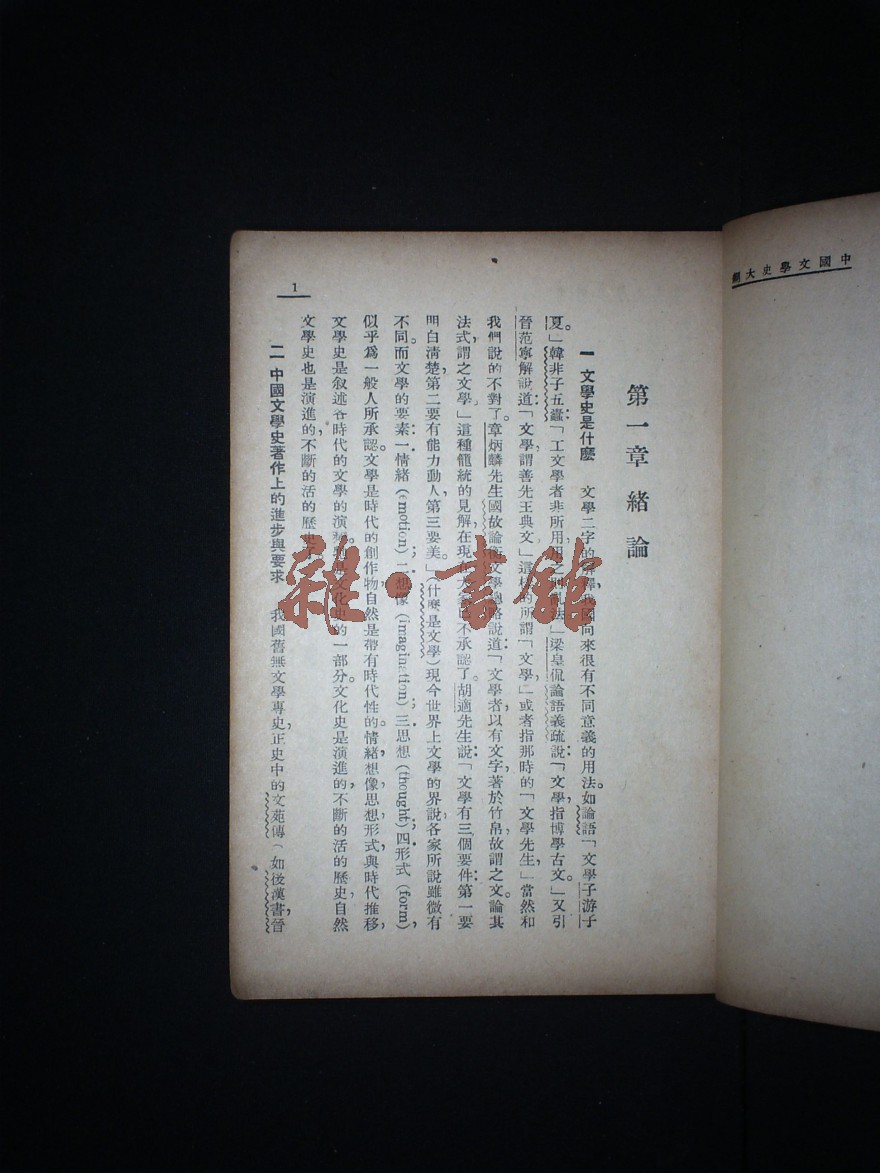 中國文學史大綱
第一章 緒論
一 文學史是什麼 文學二字的解釋我國向來很有不同意義的用法。如論語「文學子游子
夏。」韓非子五蠹：「工文學者非所用，用之則亂法。」梁皇侃論語義疏說：「文學，指博學古文。」又引
晉范寧解說道：「文學，謂善先王典文。」這樣的所謂「文學」或者指那時的「文學先生，」當然和
我們說的不對了。章炳麟先生國故論衡文學總略說道：「文學者，以有文字著於竹帛，故謂之文。論其
法式，謂之文學。」這種籠統的見解在現代大家已不承認了。胡適先生說：「文學有三個要件：第一要
明白清楚，第二要有能力動人，第三要美。」(什麼是文學)現今世界上文學的界說，各家所說雖微有
不同。而文學的要素：一情緒(emotion)；二想像(imagination)；三思想(thought)；四形式(form)，
似乎爲一般人所承認。文學是時代的創作物，自然是帶有時代性的。情緒，想像，思想，形式，與時代推移，
文學史是叙述各時代的文學的演變，即是文化史的一部分。文化史是演進的，不斷的活的歷史，自然
文學史也是演進的，不斷的活的歷史
二 中國文學史著作上的進步與要求 我國舊無文學專史，正史中的文苑傳(如後漢書，晉
1
雜·書館